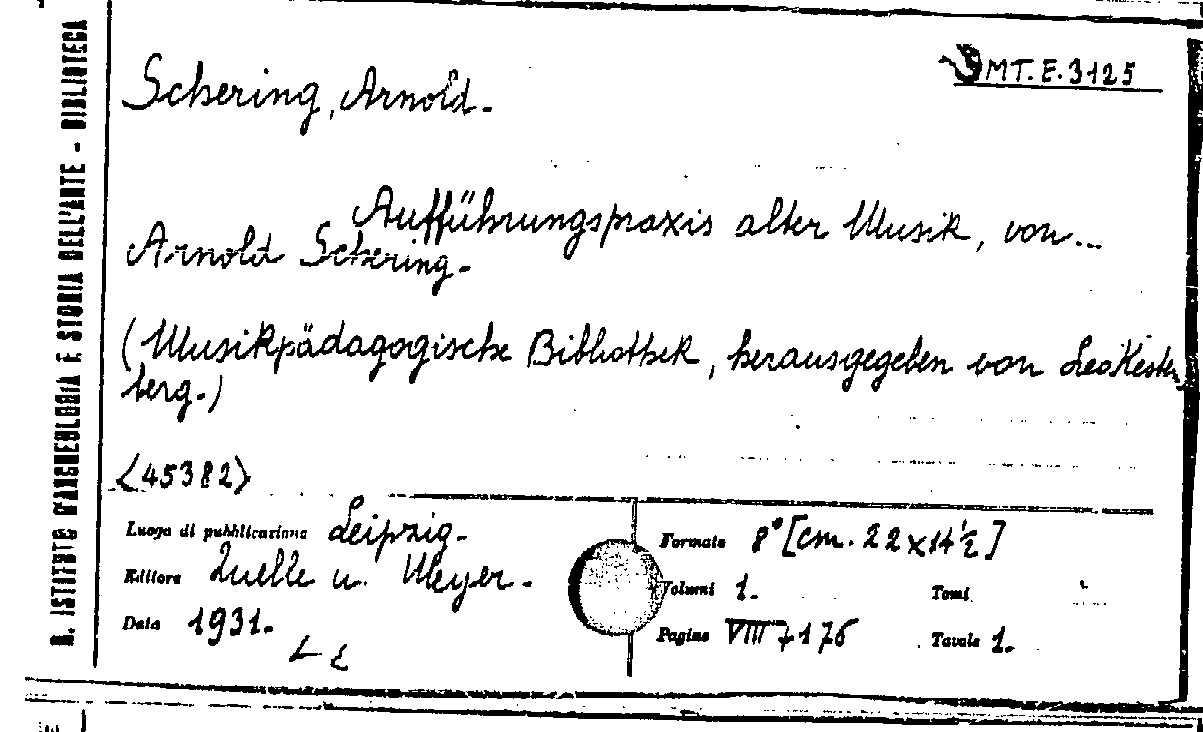 R. ISTITUTO D'ARCHEOLOGIA E STORIA DELL'ARTE - BIBLIOTECA
MT. E. 3125
Schering, Arnold.
Aufführungspraxis alter Musik, von...
Arnold Schering.
(Musikpädagogische Bibliothek, herausgegeben von Leo Kesten
berg.)
<45382>
Luogo di pubblicazione Leipzig.
Editore Quelle u. Meyer.
Data 1931.
Formato 8° [cm. 22 x 14 ½]
Volumi 1. Tomi
Pagine VIII + 176 Tavole 1.